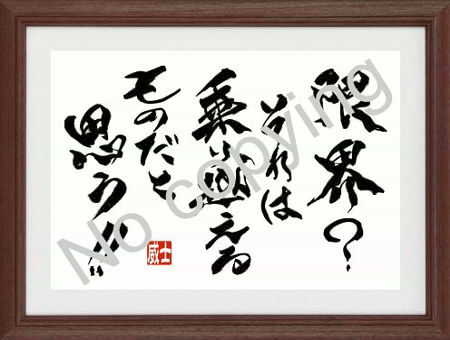 限界？
それは
乗り越える
ものだと
思う!!
威士
No copying